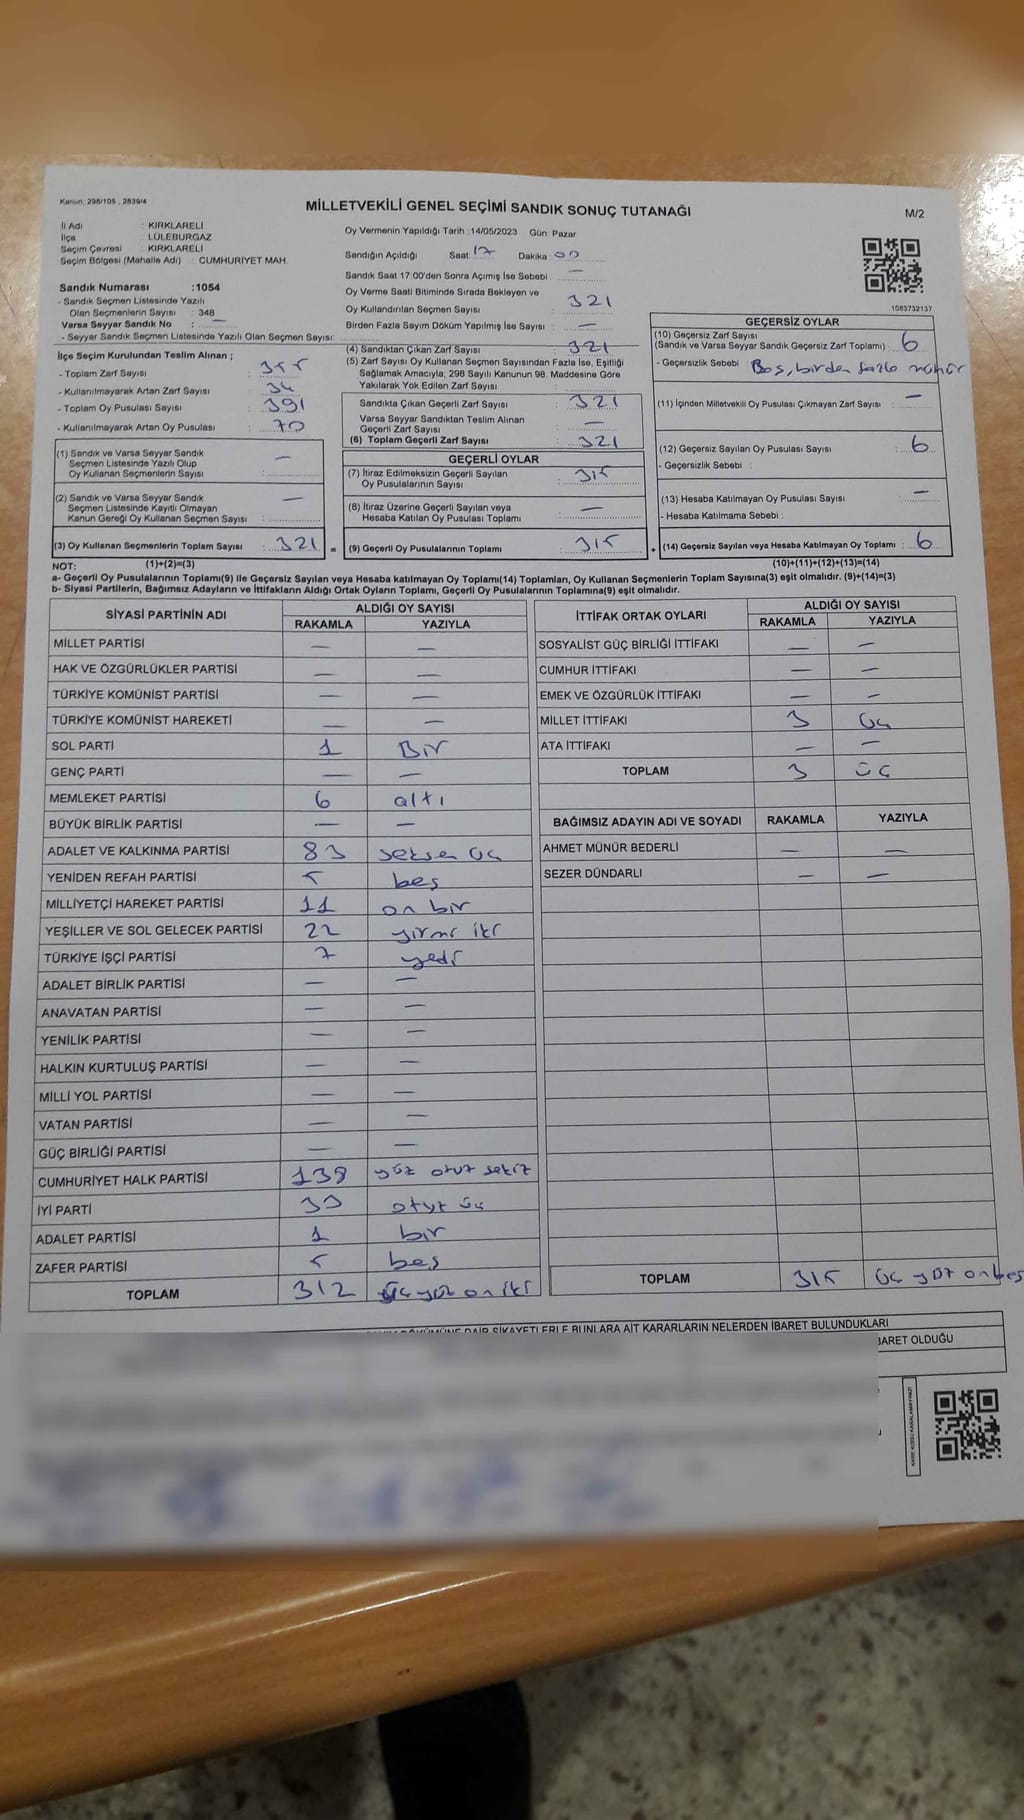 Kanun: 298/105 , 2839/4
MİLLETVEKİLİ GENEL SEÇİMİ SANDIK SONUÇ TUTANAĞI
M/2
İl Adı : KIRKLARELİ
İlçe : LÜLEBURGAZ
Seçim Çevresi : KIRKLARELİ
Seçim Bölgesi (Mahalle Adı) : CUMHURİYET MAH.
Sandık Numarası :1054
- Sandık Seçmen Listesinde Yazılı
Olan Seçmenlerin Sayısı : 348
Varsa Seyyar Sandık No : —
- Seyyar Sandık Seçmen Listesinde Yazılı Olan Seçmen Sayısı:
İlçe Seçim Kurulundan Teslim Alınan ;
- Toplam Zarf Sayısı : 355
- Kullanılmayarak Artan Zarf Sayısı : 34
- Toplam Oy Pusulası Sayısı : 391
- Kullanılmayarak Artan Oy Pusulası : 70
(1) Sandık ve Varsa Seyyar Sandık
Seçmen Listesinde Yazılı Olup
Oy Kullanan Seçmenlerin Sayısı : —
(2) Sandık ve Varsa Seyyar Sandık
Seçmen Listesinde Kayıtlı Olmayan
Kanun Gereği Oy Kullanan Seçmen Sayısı : —
(3) Oy Kullanan Seçmenlerin Toplam Sayısı : 321
Oy Vermenin Yapıldığı Tarih :14/05/2023 Gün: Pazar
Sandığın Açıldığı Saat: 17 Dakika: 00
Sandık Saat 17:00'den Sonra Açımış İse Sebebi : —
Oy Verme Saati Bitiminde Sırada Bekleyen ve
Oy Kullandırılan Seçmen Sayısı : 321
Birden Fazla Sayım Döküm Yapılmış İse Sayısı : —
(4) Sandıktan Çıkan Zarf Sayısı : 321
(5) Zarf Sayısı Oy Kullanan Seçmen Sayısından Fazla İse, Eşitliği
Sağlamak Amacıyla; 298 Sayılı Kanunun 98. Maddesine Göre
Yakılarak Yok Edilen Zarf Sayısı :
Sandıkta Çıkan Geçerli Zarf Sayısı : 321
Varsa Seyyar Sandıktan Teslim Alınan
Geçerli Zarf Sayısı : —
(6) Toplam Geçerli Zarf Sayısı : 321
GEÇERLİ OYLAR
(7) İtiraz Edilmeksizin Geçerli Sayılan
Oy Pusulalarının Sayısı : 315
(8) İtiraz Üzerine Geçerli Sayılan veya
Hesaba Katılan Oy Pusulası Toplamı : —
= (9) Geçerli Oy Pusulalarının Toplamı : 315
1083732137
GEÇERSİZ OYLAR
(10) Geçersiz Zarf Sayısı
(Sandık ve Varsa Seyyar Sandık Geçersiz Zarf Toplamı) : 6
- Geçersizlik Sebebi : Boş, birden fazla mühür
(11) İçinden Milletvekili Oy Pusulası Çıkmayan Zarf Sayısı : —
(12) Geçersiz Sayılan Oy Pusulası Sayısı : 6
- Geçersizlik Sebebi :
(13) Hesaba Katılmayan Oy Pusulası Sayısı : —
- Hesaba Katılmama Sebebi :
+ (14) Geçersiz Sayılan veya Hesaba Katılmayan Oy Toplamı : 6
NOT: (1)+(2)=(3) (10)+(11)+(12)+(13)=(14)
a- Geçerli Oy Pusulalarının Toplamı(9) ile Geçersiz Sayılan veya Hesaba katılmayan Oy Toplamı(14) Toplamları, Oy Kullanan Seçmenlerin Toplam Sayısına(3) eşit olmalıdır. (9)+(14)=(3)
b- Siyasi Partilerin, Bağımsız Adayların ve İttifakların Aldığı Ortak Oyların Toplamı, Geçerli Oy Pusulalarının Toplamına(9) eşit olmalıdır.
SİYASİ PARTİNİN ADI ALDIĞI OY SAYISI
RAKAMLA YAZIYLA
MİLLET PARTİSİ — —
HAK VE ÖZGÜRLÜKLER PARTİSİ — —
TÜRKİYE KOMÜNİST PARTİSİ — —
TÜRKİYE KOMÜNİST HAREKETİ — —
SOL PARTİ 1 Bir
GENÇ PARTİ — —
MEMLEKET PARTİSİ 6 altı
BÜYÜK BİRLİK PARTİSİ — —
ADALET VE KALKINMA PARTİSİ 83 seksen üç
YENİDEN REFAH PARTİSİ 5 beş
MİLLİYETÇİ HAREKET PARTİSİ 11 on bir
YEŞİLLER VE SOL GELECEK PARTİSİ 22 yirmi iki
TÜRKİYE İŞÇİ PARTİSİ 7 yedi
ADALET BİRLİK PARTİSİ — —
ANAVATAN PARTİSİ — —
YENİLİK PARTİSİ — —
HALKIN KURTULUŞ PARTİSİ — —
MİLLİ YOL PARTİSİ — —
VATAN PARTİSİ — —
GÜÇ BİRLİĞİ PARTİSİ — —
CUMHURİYET HALK PARTİSİ 138 yüz otuz sekiz
İYİ PARTİ 33 otuz üç
ADALET PARTİSİ 1 bir
ZAFER PARTİSİ 5 beş
TOPLAM 312 üç yüz on iki
İTTİFAK ORTAK OYLARI ALDIĞI OY SAYISI
RAKAMLA YAZIYLA
SOSYALİST GÜÇ BİRLİĞİ İTTİFAKI — —
CUMHUR İTTİFAKI — —
EMEK VE ÖZGÜRLÜK İTTİFAKI — —
MİLLET İTTİFAKI 3 üç
ATA İTTİFAKI — —
TOPLAM 3 üç
BAĞIMSIZ ADAYIN ADI VE SOYADI RAKAMLA YAZIYLA
AHMET MÜNÜR BEDERLİ — —
SEZER DÜNDARLI — —
TOPLAM 315 üç yüz onbeş
DÖKÜMÜNE DAİR ŞİKAYETLERLE BUNLARA AİT KARARLARIN NELERDEN İBARET BULUNDUKLARI
BARET OLDUĞU